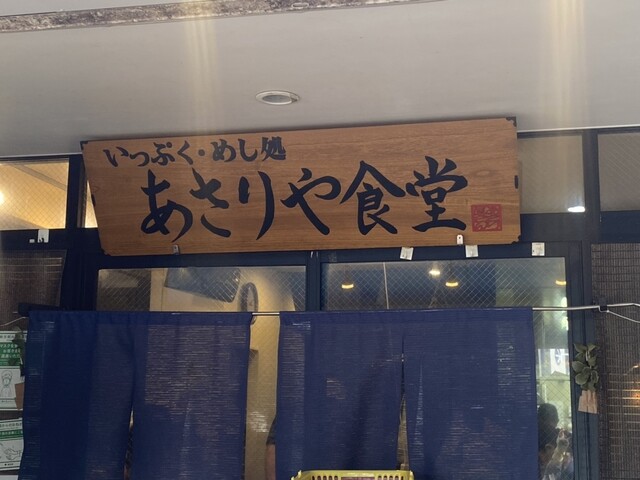 いっぷく・めし処
あさりや食堂